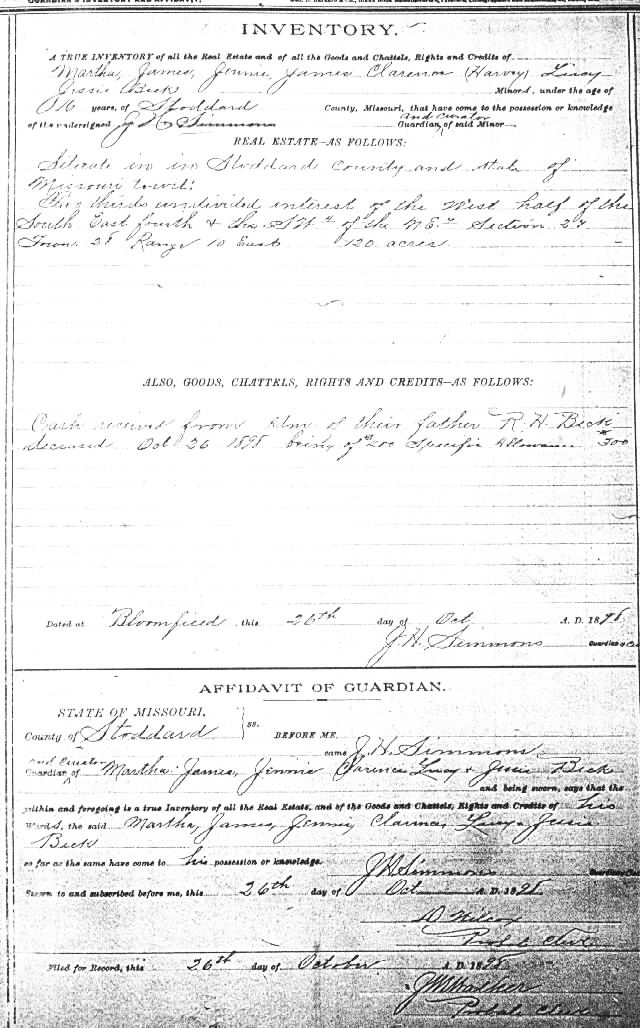 GUARDIAN'S INVENTORY AND AFFIDAVIT.
INVENTORY.
A TRUE INVENTORY of all the Real Estate and of all the Goods and Chattels, Rights and Credits of
Martha, James, Jennie, James Clarence (Harvey) Lucy
Jessie Beck Minors, under the age of
16 years, of Stoddard County, Missouri, that have come to the possession or knowledge
and curator
of the undersigned J H Simmons Guardian of said Minor
REAL ESTATE—AS FOLLOWS:
Situate in in Stoddard County and state of
Missouri towit:
thirds undivided interest of the West half of the
South East fourth & the of the N.E. Section 27
Town 28 Range 10 East 120 acres
ALSO, GOODS, CHATTELS, RIGHTS AND CREDITS—AS FOLLOWS:
Cash received from Adm. of their father R. H. Beck
deceased Oct 26 1898 being of $200 Specific Allowance $300
Dated at Bloomfield this 26th day of Oct A. D. 1898
J. H. Simmons Guardian
AFFIDAVIT OF GUARDIAN.
STATE OF MISSOURI,
County of Stoddard } ss. BEFORE ME,
came J. H. Simmons
and Curator
Guardian of Martha James, Jennie Clarence Lucy & Jessie Beck
and being sworn, says that the
within and foregoing is a true Inventory of all the Real Estate, and of the Goods and Chattels, Rights and Credits of his
Wards, the said Martha, James, Jennie, Clarence, Lucy & Jessie
Beck
so far as the same have come to his possession or knowledge.
J H Simmons
Sworn to and subscribed before me, this 26th day of Oct A. D. 1898
D Wilcox
Filed for Record, this 26th day of October A. D. 1898